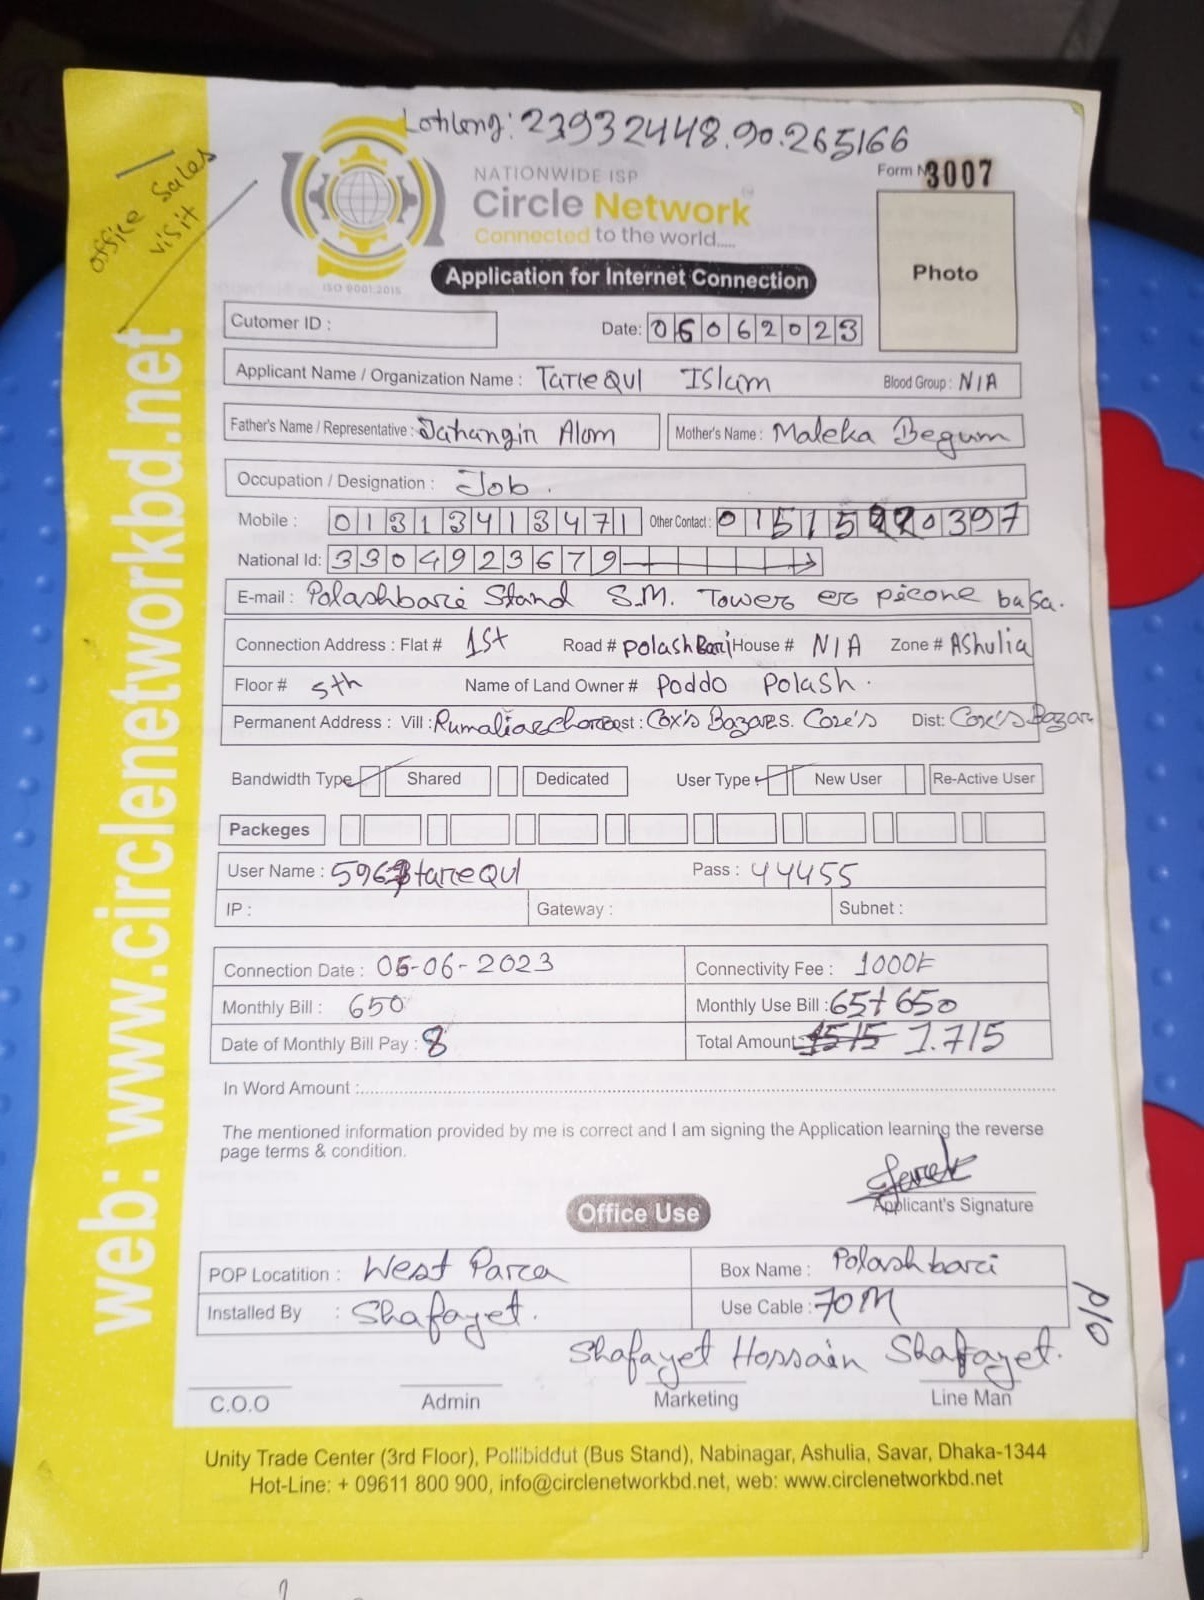 Latlong: 23932448.90.265166
Office Sales
visit
Form N 3007
NATIONWIDE ISP
Circle Network
Connected to the world.....
ISO 9001:2015
Application for Internet Connection
Photo
Cutomer ID :
Date: 06062023
Applicant Name / Organization Name : TarieQul Islam Blood Group : N/A
Father's Name / Representative : Jahangir Alom Mother's Name : Maleka Begum
Occupation / Designation : Job.
Mobile : 01313413471 Other Contact : 01515 0397
National Id: 3304923679
E-mail : Polashbari Stand S.M. Tower er picone basa.
Connection Address : Flat # 1st Road # polashBari House # N/A Zone # Ashulia
Floor # 5th Name of Land Owner # Poddo Polash.
Permanent Address : Vill : Post : Cox's Dist: Cox's Bazar
Bandwidth Type Shared Dedicated User Type New User Re-Active User
Packeges
User Name : Pass : 44455
IP : Gateway : Subnet :
Connection Date : 06-06-2023 Connectivity Fee : 1000
Monthly Bill : 650 Monthly Use Bill : 65+650
Date of Monthly Bill Pay : 8 Total Amount 1515 1.715
In Word Amount :
The mentioned information provided by me is correct and I am signing the Application learning the reverse
page terms & condition.
Applicant's Signature
Office Use
POP Locatition : West Parra Box Name : Polashbari
Installed By : Shafayet. Use Cable : 70M
P/O
Shafayet Hossain Shafayet.
C.O.O Admin Marketing Line Man
Unity Trade Center (3rd Floor), Pollibiddut (Bus Stand), Nabinagar, Ashulia, Savar, Dhaka-1344
Hot-Line: + 09611 800 900, info@circlenetworkbd.net, web: www.circlenetworkbd.net
web: www.circlenetworkbd.net